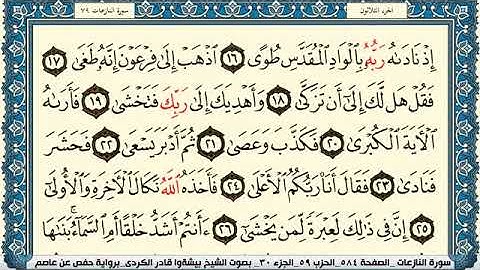 الجزء الثلاثون
سورة النازعات ٧٩
إِذْ نَادَىٰهُ رَبُّهُۥ بِٱلْوَادِ ٱلْمُقَدَّسِ طُوًى ١٦ ٱذْهَبْ إِلَىٰ فِرْعَوْنَ إِنَّهُۥ طَغَىٰ ١٧
فَقُلْ هَل لَّكَ إِلَىٰٓ أَن تَزَكَّىٰ ١٨ وَأَهْدِيَكَ إِلَىٰ رَبِّكَ فَتَخْشَىٰ ١٩ فَأَرَىٰهُ
ٱلْـَٔايَةَ ٱلْكُبْرَىٰ ٢٠ فَكَذَّبَ وَعَصَىٰ ٢١ ثُمَّ أَدْبَرَ يَسْعَىٰ ٢٢ فَحَشَرَ
فَنَادَىٰ ٢٣ فَقَالَ أَنَا۠ رَبُّكُمُ ٱلْأَعْلَىٰ ٢٤ فَأَخَذَهُ ٱللَّهُ نَكَالَ ٱلْـَٔاخِرَةِ وَٱلْأُولَىٰٓ
٢٥ إِنَّ فِى ذَٰلِكَ لَعِبْرَةً لِّمَن يَخْشَىٰٓ ٢٦ ءَأَنتُمْ أَشَدُّ خَلْقًا أَمِ ٱلسَّمَآءُ ۚ بَنَىٰهَا
سورة النازعات _ الصفحة ٥٨٤_ الحزب ٥٩_ الجزء ٣٠_ بصوت الشيخ بيشةوا قادر الكردى_ برواية حفص عن عاصم